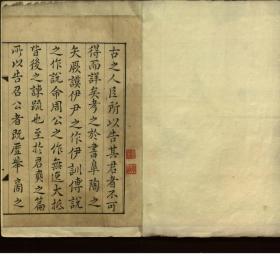 古之人臣所以告其君者不可
得而詳矣考之於書皋陶之
矢厥謨伊尹之作伊訓傅說
之作說命周公之作無逸大抵
皆後之諫疏也至於君奭之篇
所以告召公者既歷舉商之